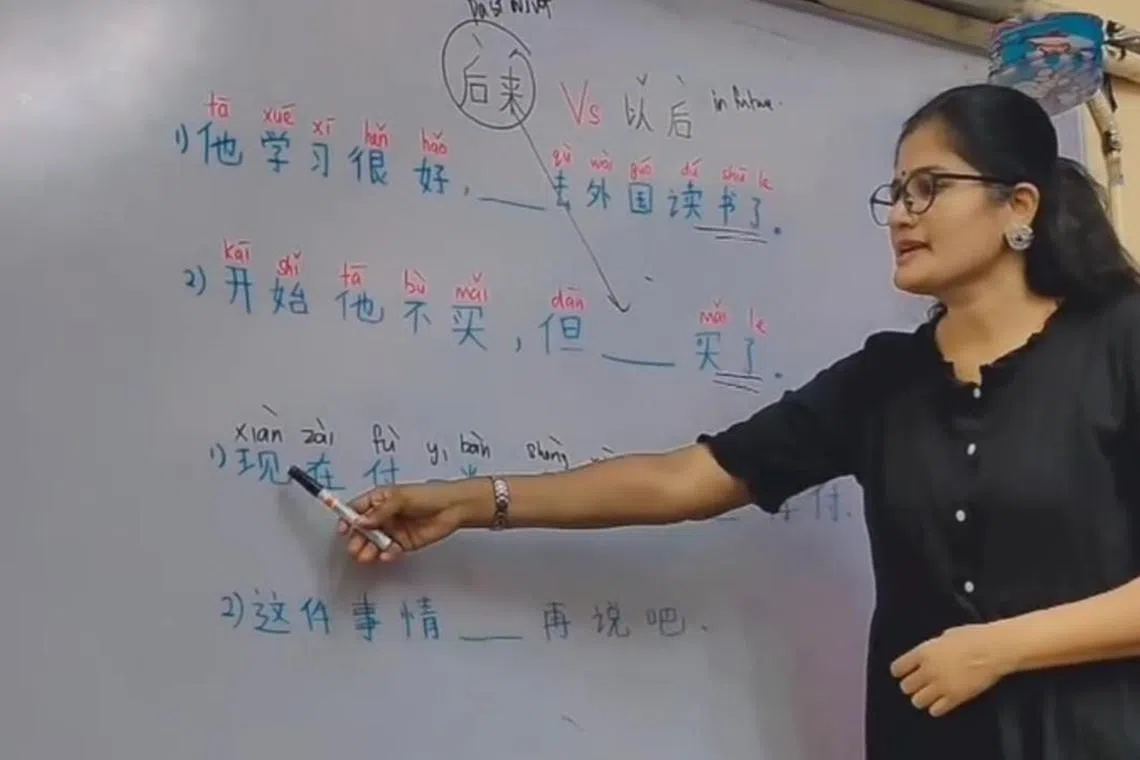 后来 Vs 以后 in future.
tā xué xí hěn hǎo qù wài guó dú shū le
1) 他学习很好, ___ 去外国读书了.
kāi shǐ tā bù mǎi dàn mǎi le
2) 开始他不买, 但 ___ 买了.
xiàn zài fù yí bàn shèng
1) 现在付 付.
2) 这件事情 ___ 再说吧.